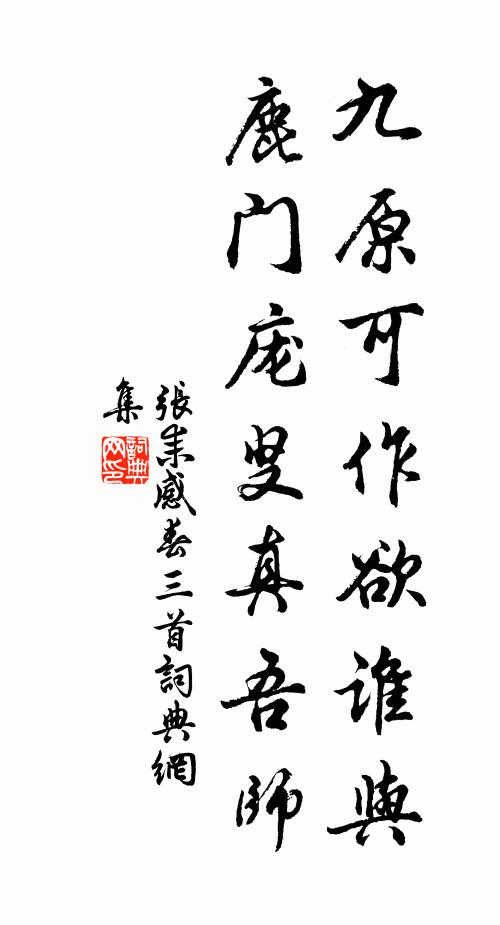 九原可作欲谁與
鹿门庞叟真吾師
張耒感春三首詞典網
集
詞典网印